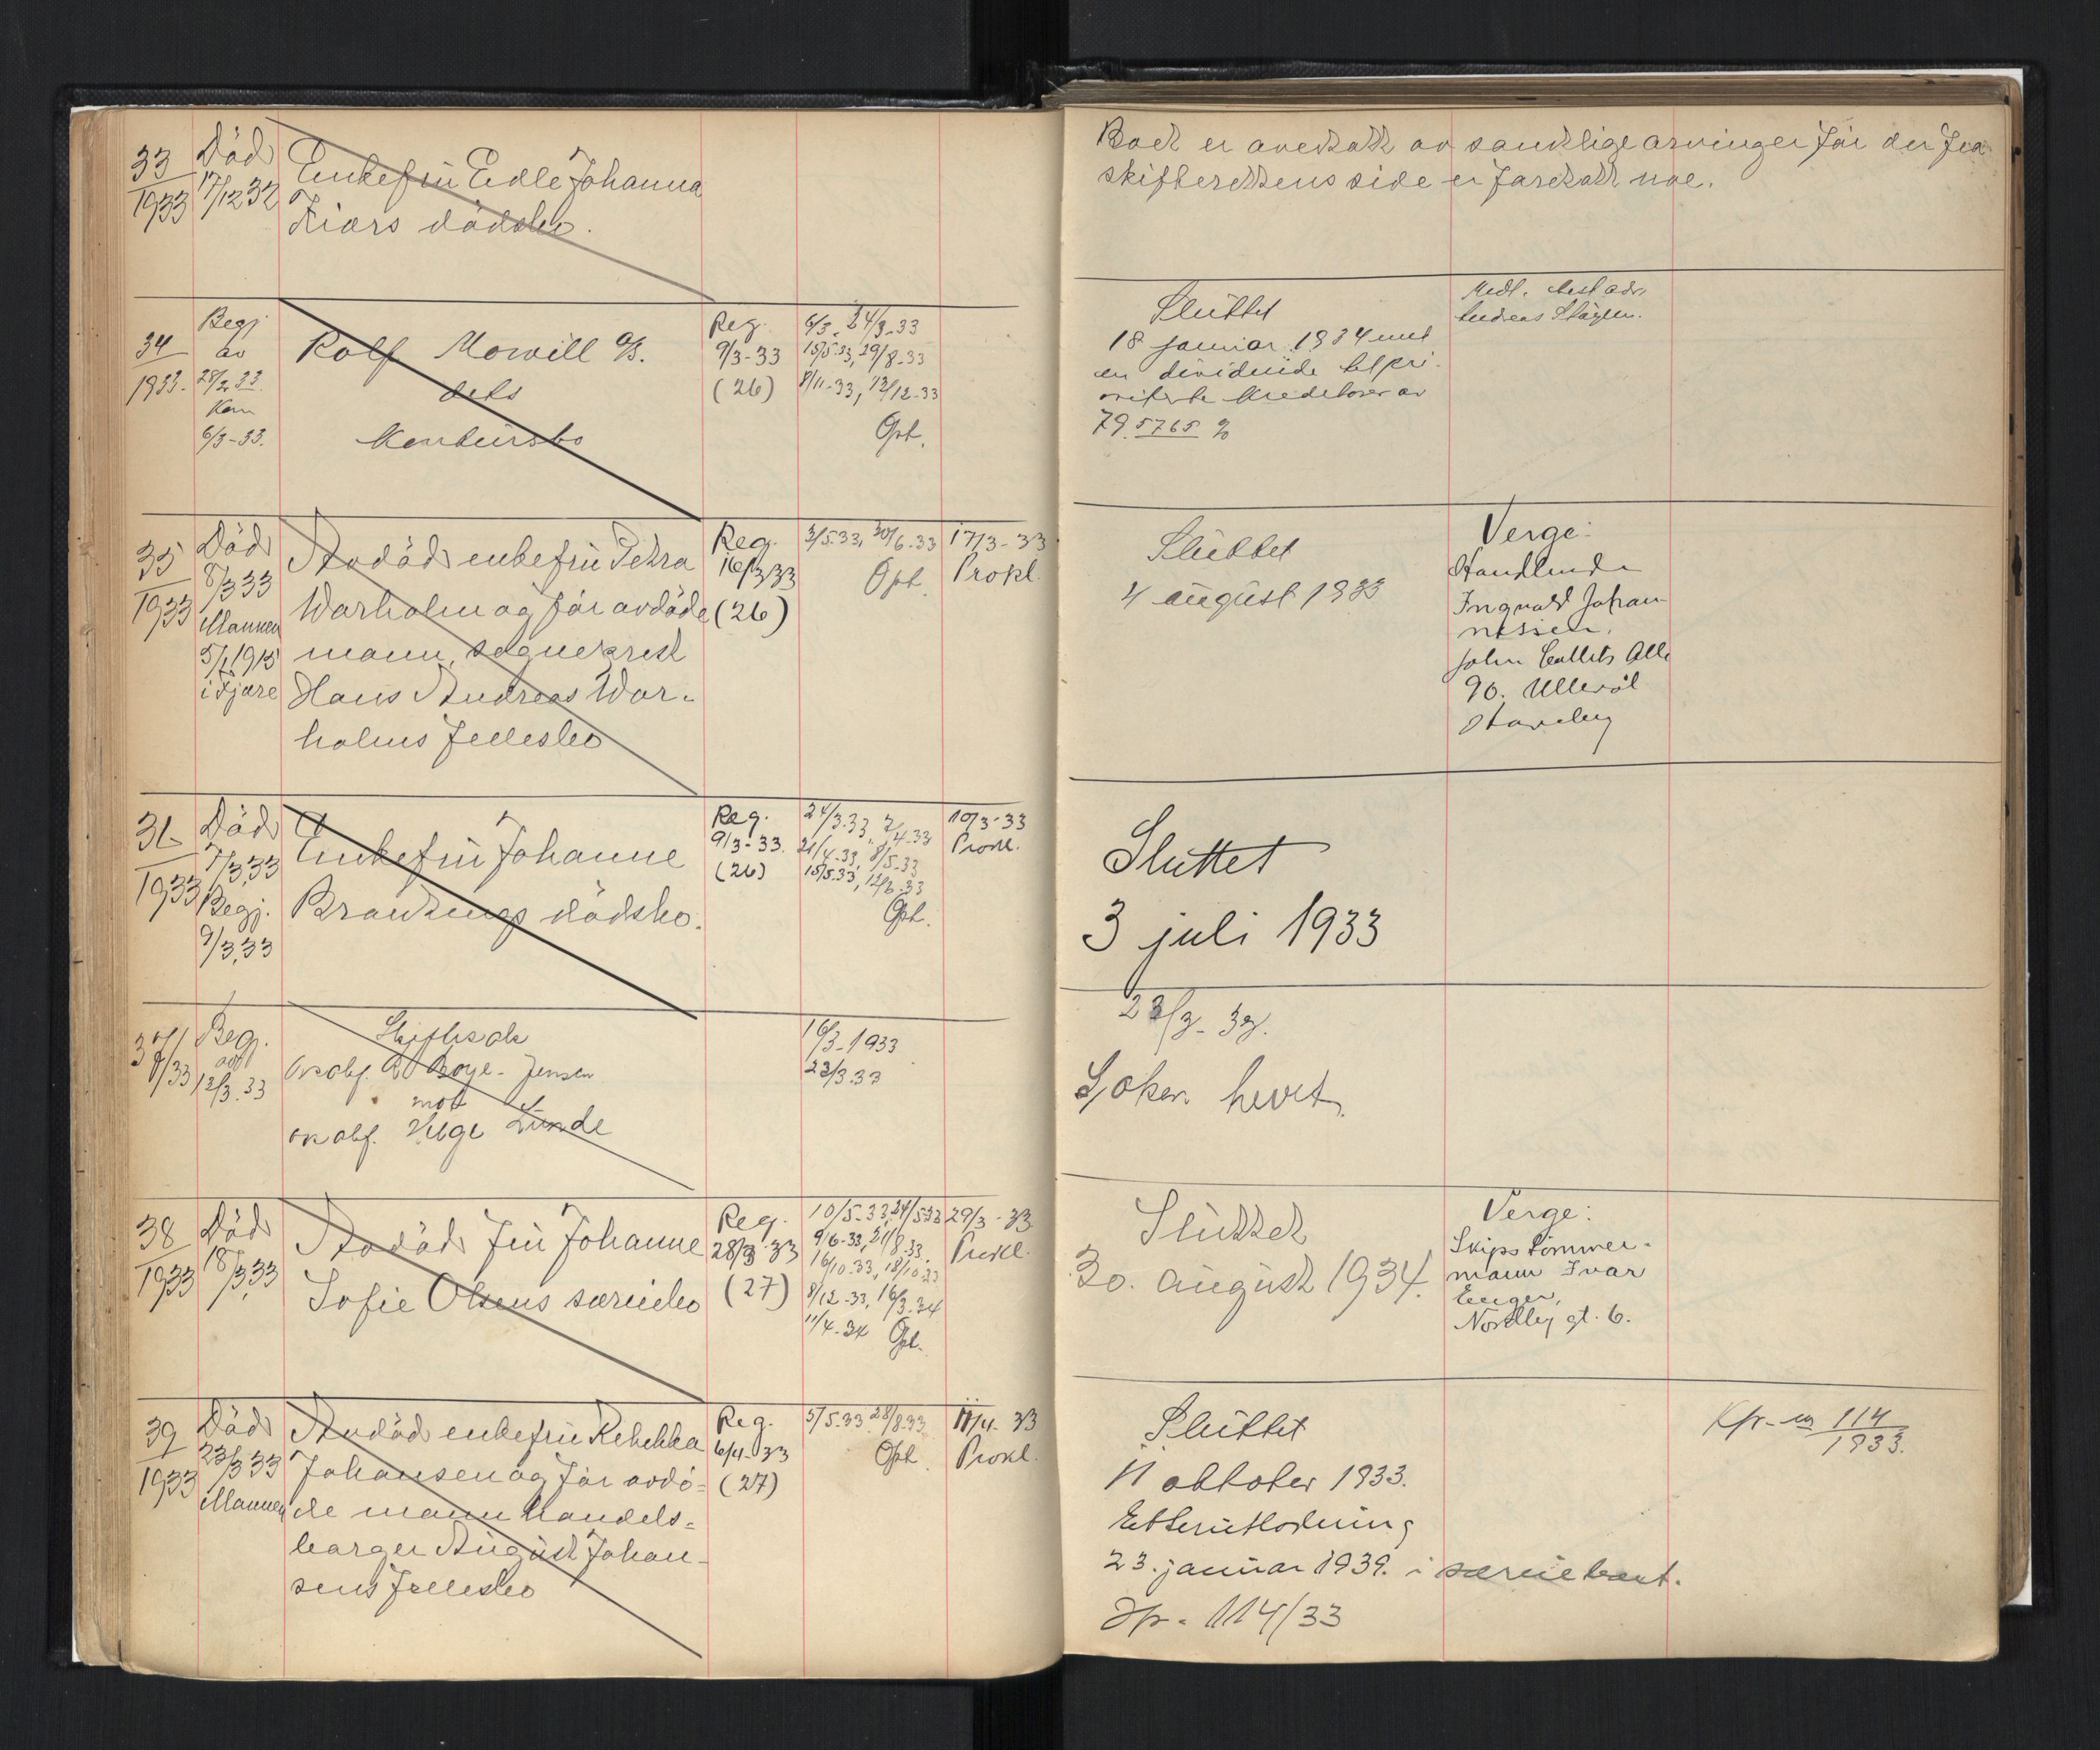 33
1933
Död
17/12 32
Enkefrü Edle Johanna
Kiærs dödsbo.
Boet er overtatt av samtlige arvinger för der fra
skifterettens side er foretatt noe.
34
1933.
Begj
av
28/2 33.
Kon
6/3-33.
Rolf Mowill A/S.
dets
Konkursbo
Reg.
9/3-33
(26)
6/3- 24/3-33
15/5.33, 29/8-33
8/11-33, 13/12-33
Opt.
Slüttet
18 januar 1934 med
en dividende til pri-
oriterte kreditorer av
79.5765 %
Medl. best adv.
Andreas
35
1933
Död
8/3 33
Mannen
5/1 1915
i Fjære
Avdöd enkefrü Petra
Warholm og för avdöde
mann, sogneprest
Hans Andreas War-
holms fellesbo
Reg.
16/3 33
(26)
3/5.33, 30/6-33
Opt.
17/3-33
Prokl.
Slüttet
4 aügüst 1933
Verge:
Handlende
Ingvald Johan-
nessen.
John Colletts Alle
96. Ullevål
Haveby
36
1933
Död
7/3 33
Begj.
9/3.33
Enkefrü Johanne
dödsbo.
Reg.
9/3-33.
(26)
24/3.33, 7/4-33
21/4-33, 8/5-33
15/5.33, 12/6-33
Opt.
10/3-33
Prokl.
Sluttet
3 juli 1933
37/33
Beg.
av
13/3.33
Skiftesak
Oradf. Boye-Jensen
mot
oradf. Helge Lunde
16/3-1933
23/3.33
23/3-33.
Saken hevet.
38
1933
Död
18/3,33
Avdöd frü Johanne
Sofie Olsens særeiebo
Reg.
28/3 33
(27)
10/5-33, 24/5 33
9/6-33, 21/8 33.
16/10-33, 18/10-33
8/12-33, 16/3-34
11/4-34 Opt.
29/3-33
Prokl.
Slüttet
30. aügüst 1934.
Verge:
Skipstömmer-
mann Ivar
Enger,
Nordby gt. 6.
39
1933
Död
23/3 33
Mannen
Avdöd enkefrü Rebekka
Johansen og för avdö-
de mann handels-
borger Aügüst Johan-
sens fellesbo
Reg.
6/4-33
(27)
5/5-33 28/8.33
Opt.
11/4-33
Prokl.
Slüttet
11 oktober 1933.
Etterutlodning
23. januar 1939. i særeieboet.
Jfr. 114/33
Kfr. nr 114
1933.